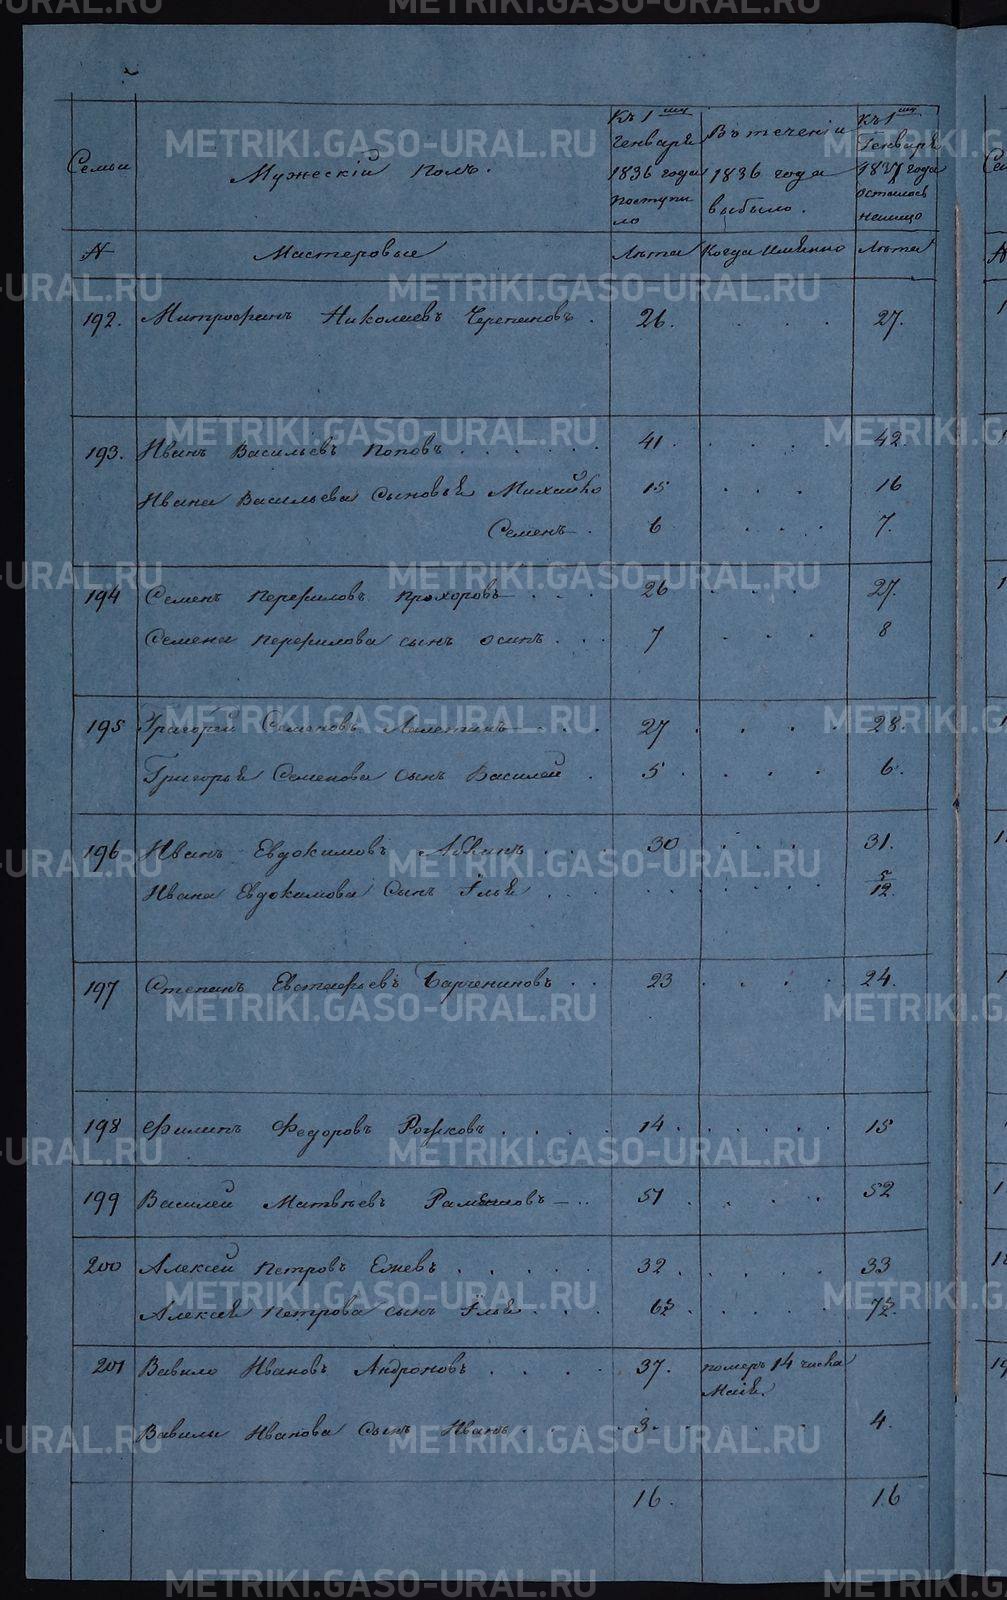 Семьи
Мужескій полъ.
Къ 1му Генваря 1836 года поступило
Въ теченіи 1836 года выбыло.
Къ 1му Генваря 1837 года осталось налицо
№ Мастеровые Лѣта Когда именно Лѣта
192. Митрофанъ Николаевъ Черепановъ. 26. 27.
193. Иванъ Васильевъ Поповъ 41. 42
Ивана Васильева сыновья Михайло 15 16
Семенъ 6 7.
194 Семенъ Перфиловъ Прохоровъ 26 27.
Семена Перфилова сынъ Осипъ 7 8
195 Григорей Семеновъ 27 28.
Григорья Семенова сынъ Василей 5 6.
196 Иванъ Евдокимовъ 30 31.
Ивана Евдокимова сынъ Илья 5/12.
197 Степанъ Евстафьевъ 23 24.
198 Филипъ Федоровъ Рожковъ 14 15
199 Василей Матвѣевъ 51 52
200 Алексѣй Петровъ Ежевъ 32 33
Алексѣя Петрова сынъ Илья
201 Вавило Ивановъ Андроновъ 37. померъ 14 числа Маія.
Вавилы Иванова сынъ Иванъ 3. 4.
16. 16
METRIKI.GASO-URAL.RU